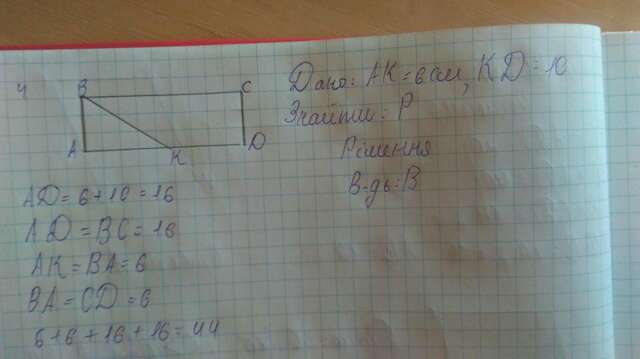 4
B C
A K D
Дано: AK = 6 см, KD = 10
Знайти: P
Рішення
В-дь: В
AD = 6 + 10 = 16
AD = BC = 16
AK = BA = 6
BA = CD = 6
6 + 6 + 16 + 16 = 44